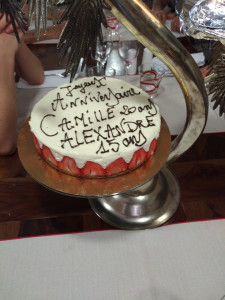 Joyeux
Anniversaire
CAMILLE 20 ans
ALEXANDRE
15 ans